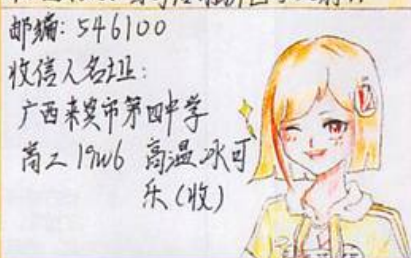 邮编:546100
收信人名址:
广西来宾市第四中学
高二19w6 高温冰可
乐(收)